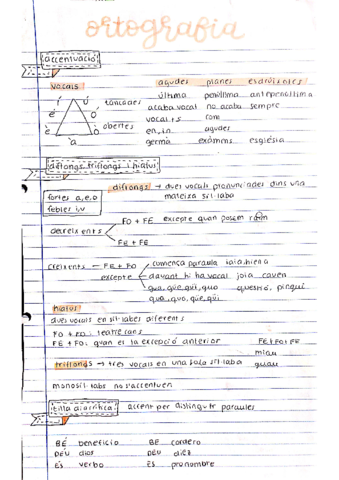 ortografia
accentuació
vocals
agudes planes esdrúixoles
última penúltima antepenúltima
í ú tancades
acaba vocal no acaba sempre
é ó
vocal + s com
è ò obertes
en, in agudes
à
germà exàmens església
diftongs, triftongs i hiatus
diftongs → dues vocals pronunciades dins una
mateixa síl·laba
fortes a,e,o
febles i,u
FO + FE excepte quan posem
decreixents
FE + FE
creixents — FE + FO comença paraula
excepte davant hi ha vocal joia, caven
qua, qüe, qüi, quo qüestió, pingüí
gua, guo, güe, güi
hiatus
dues vocals en síl·labes diferents
FO + FO: teatre, caos
FE + FO: quan es la excepció anterior FE+FO+FE
miau
triftongs → tres vocals en una sola síl·laba guau
monosíl·labs no s'accentuen
titlla diacrítica: accent per distingir paraules
BÉ beneficio BE cordero
DÉU dios DEU diez
ÉS verbo ES pronombre